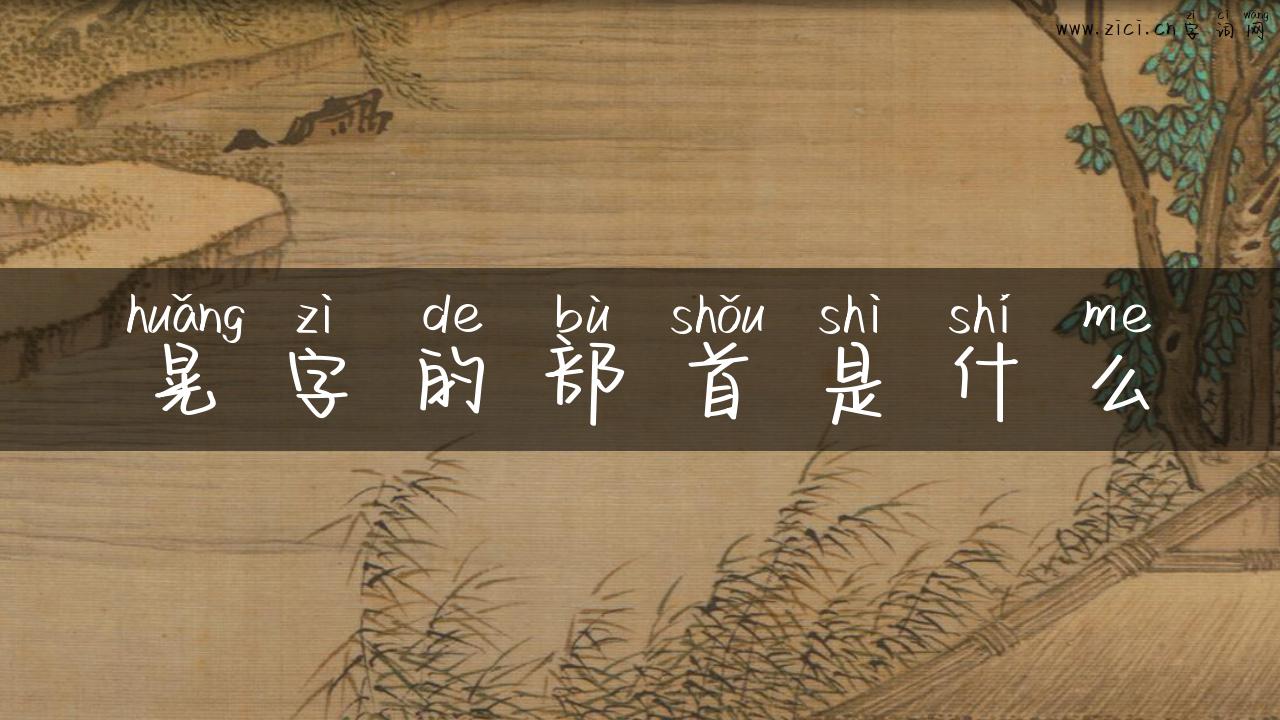 zì cí wǎng
www.zici.cn字词网
huǎng zì de bù shǒu shì shí me
晃字的部首是什么